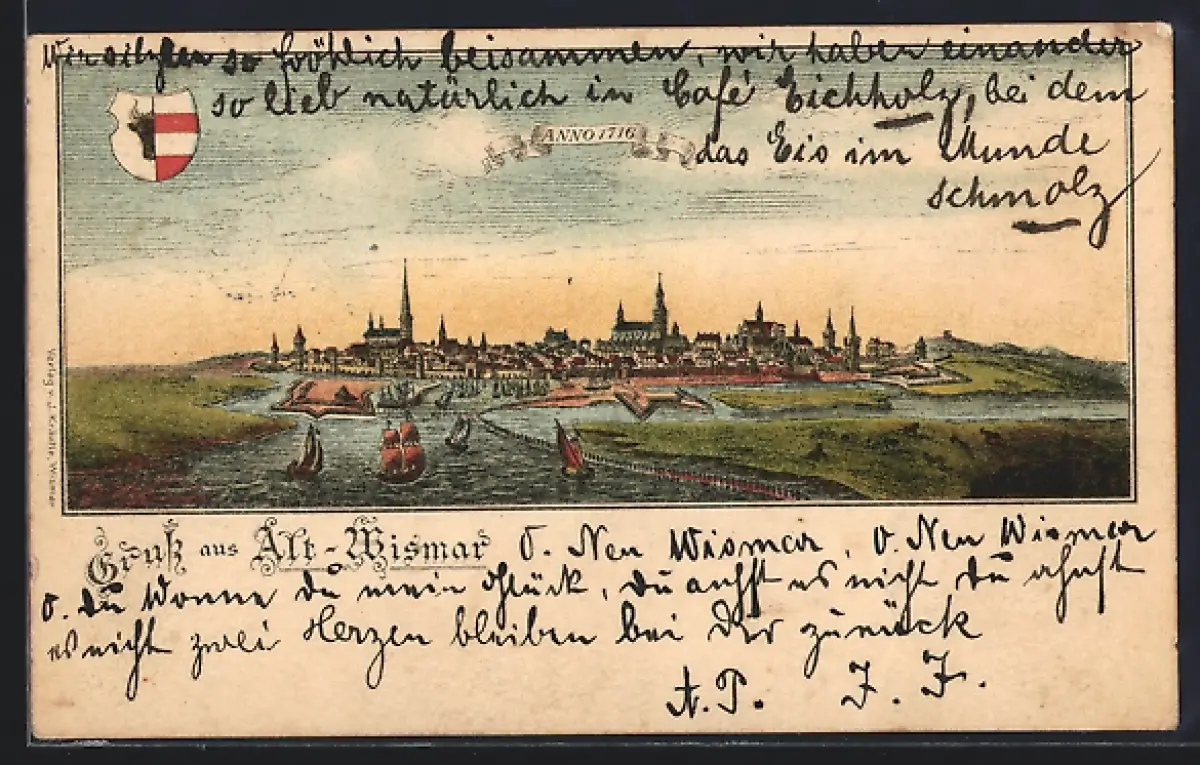 Wir sitzen so fröhlich beisammen, wir haben einander
so lieb natürlich in Café Eichholz, bei dem
ANNO 1716
das Eis im Munde
schmolz
Verlag v. J. Krause, Wismar
Gruß aus Alt-Wismar O. Neu Wismar, O. Neu Wismar
O. du Wonne du mein Glück, du ahnst es nicht du ahnst
es nicht zwei Herzen bleiben bei Dir zurück
A. P. J. F.